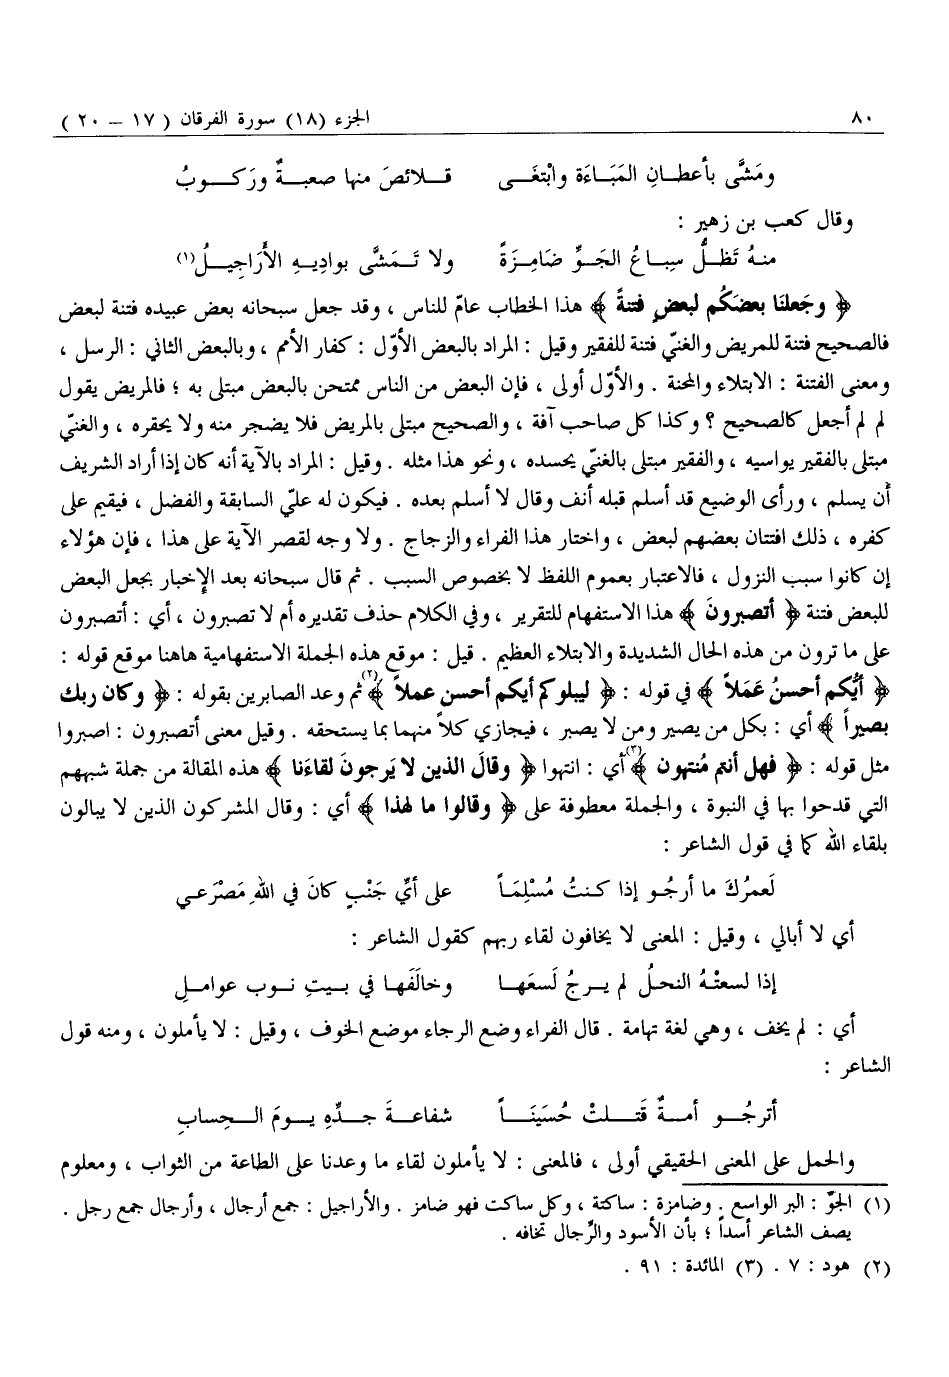 ٨٠ الجزء (١٨) سورة الفرقان ( ١٧ – ٢٠ )
ومَشَّى بأعطـانِ المَبَـاءَة وابْتغَـى قـلائصَ منها صعبـةٌ ورَكـوبُ
وقال كعب بن زهير :
منهُ تَظلُّ سِباعُ الجَوِّ ضَامِزةً ولا تَـمَشَّى بوادِيهِ الأَراجيلُ(١)
﴿ وجَعلنَا بعضَكُم لبعضٍ فتنةً ﴾ هذا الخطاب عامّ للناس ، وقد جعل سبحانه بعض عبيده فتنة لبعض
فالصحيح فتنة للمريض والغنيّ فتنة للفقير وقيل : المراد بالبعض الأوّل : كفار الأمم ، وبالبعض الثاني : الرسل ،
ومعنى الفتنة : الابتلاء والمحنة . والأوّل أولى ، فإن البعض من الناس ممتحن بالبعض مبتلى به ؛ فالمريض يقول
لم لم أجعل كالصحيح ؟ وكذا كل صاحب آفة ، والصحيح مبتلى بالمريض فلا يضجر منه ولا يحقره ، والغنيّ
مبتلى بالفقير يواسيه ، والفقير مبتلى بالغنيّ يحسده ، ونحو هذا مثله . وقيل : المراد بالآية أنه كان إذا أراد الشريف
أن يسلم ، ورأى الوضيع قد أسلم قبله أنف وقال لا أسلم بعده . فيكون له عليّ السابقة والفضل ، فيقيم على
كفره ، ذلك افتتان بعضهم لبعض ، واختار هذا الفراء والزجاج . ولا وجه لقصر الآية على هذا ، فإن هؤلاء
إن كانوا سبب النزول ، فالاعتبار بعموم اللفظ لا بخصوص السبب . ثم قال سبحانه بعد الإخبار بجعل البعض
للبعض فتنة ﴿ أتصبرونَ ﴾ هذا الاستفهام للتقرير ، وفي الكلام حذف تقديره أم لا تصبرون ، أي : أتصبرون
على ما ترون من هذه الحال الشديدة والابتلاء العظيم . قيل : موقع هذه الجملة الاستفهامية هاهنا موقع قوله :
﴿ أيُّكم أحسنُ عَمَلاً ﴾ في قوله : ﴿ ليبلوكم أيكم أحسن عملاً ﴾(٢) ثم وعد الصابرين بقوله : ﴿ وكان ربك
بصيراً ﴾ أي : بكل من يصير ومن لا يصبر ، فيجازي كلاً منهما بما يستحقه . وقيل معنى أتصبرون : اصبروا
مثل قوله : ﴿ فهل أنتم مُنتهون ﴾(٣) أي : انتهوا ﴿ وقالَ الذين لا يَرجونَ لقاءَنا ﴾ هذه المقالة من جملة شبههم
التي قدحوا بها في النبوة ، والجملة معطوفة على ﴿ وقالوا ما لهذا ﴾ أي : وقال المشركون الذين لا يبالون
بلقاء الله كما في قول الشاعر :
لَعمرُكَ ما أرجُـو إذا كنتُ مُسْلِمَـاً على أيِّ جَنْبٍ كانَ في اللهِ مَصْرَعـي
أي لا أبالي ، وقيل : المعنى لا يخافون لقاء ربهم كقول الشاعر :
إذا لسعتْهُ النحلُ لم يـرجُ لَسعَهـا وخالَفَها في بـيتِ نـوب عوامـلِ
أي : لم يخف ، وهي لغة تهامة . قال الفراء وضع الرجاء موضع الخوف ، وقيل : لا يأملون ، ومنه قول
الشاعر :
أترجُـو أمـةٌ قَتـلتْ حُسَينَـاً شفاعـةَ جـدِّهِ يـومَ الـحِسابِ
والحمل على المعنى الحقيقي أولى ، فالمعنى : لا يأملون لقاء ما وعدنا على الطاعة من الثواب ، ومعلوم
(١) الجوّ : البر الواسع . وضامزة : ساكتة ، وكل ساكت فهو ضامز . والأراجيل : جمع أرجال ، وأرجال جمع رجل .
يصف الشاعر أسداً ؛ بأن الأسود والرِّجال تخافه .
(٢) هود : ٧ . (٣) المائدة : ٩١ .